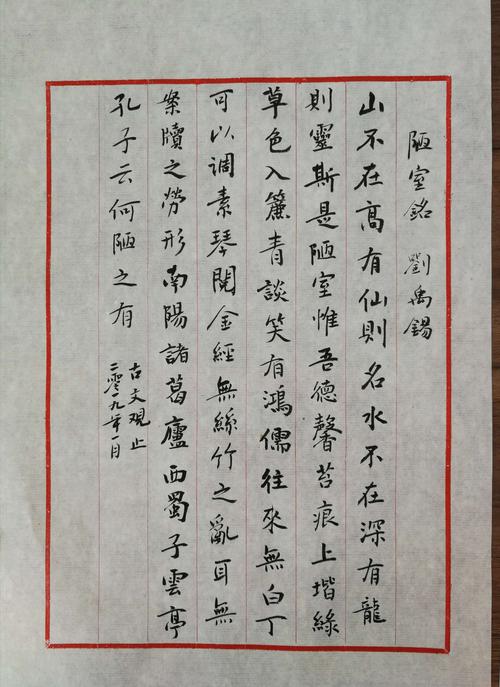 陋室銘 劉禹錫
山不在高有仙則名水不在深有龍
則靈斯是陋室惟吾德馨苔痕上堦綠
草色入簾青談笑有鴻儒往來無白丁
可以調素琴閱金經無絲竹之亂耳無
案牘之勞形南陽諸葛廬西蜀子雲亭
孔子云何陋之有
古文观止
二零一九年一月